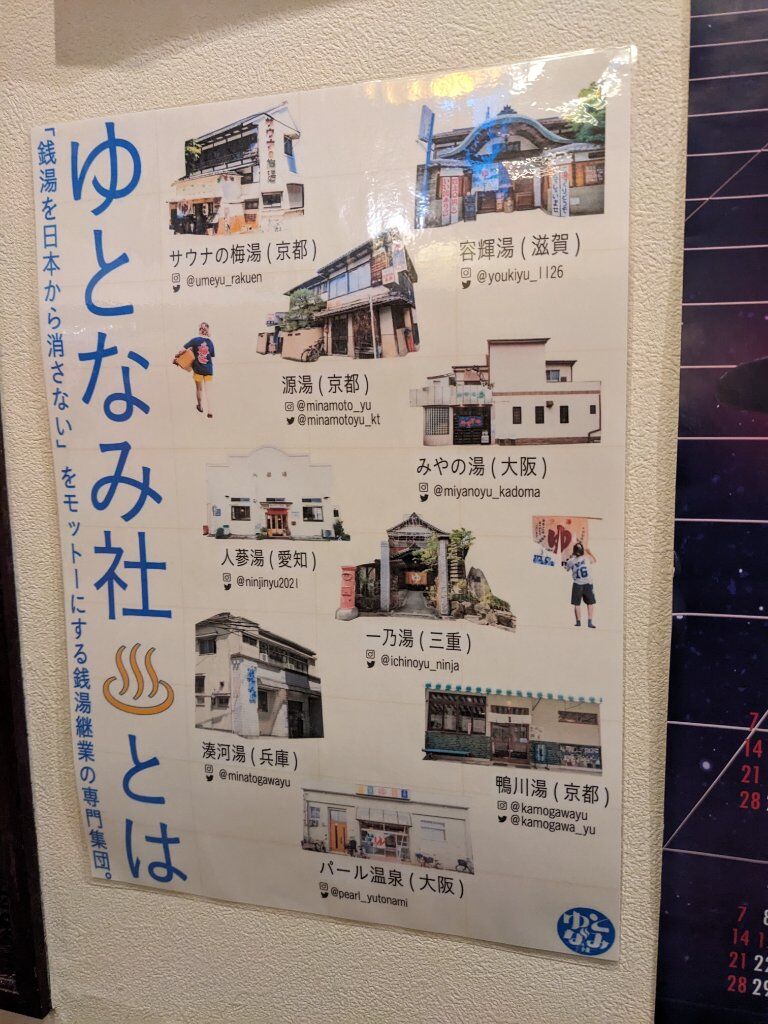 ゆとなみ社♨とは
「銭湯を日本から消さない」をモットーにする銭湯継業の専門集団。
サウナの梅湯(京都)
@umeyu_rakuen
容輝湯(滋賀)
@youkiyu_1126
源湯(京都)
@minamoto_yu
@minamotoyu_kt
みやの湯(大阪)
@miyanoyu_kadoma
人蔘湯(愛知)
@ninjinyu2021
ゆ
16
一乃湯(三重)
@ichinoyu_ninja
湊河湯(兵庫)
@minatogawayu
鴨川湯(京都)
@kamogawayu
@kamogawa_yu
パール温泉(大阪)
@pearl_yutonami
ゆとなみ
7
14
21
28
7 8
14
21 22
28 29